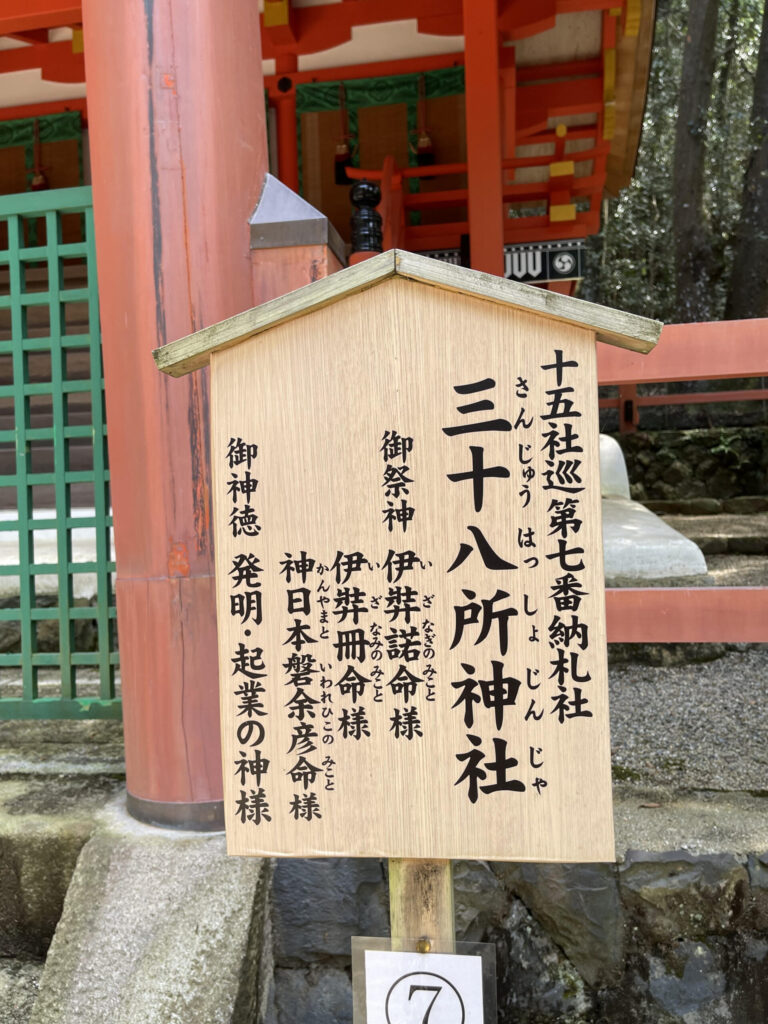 十五社巡第七番納札社
三十八所神社
さんじゅうはっしょじんじゃ
御祭神 伊弉諾命様
いざなぎのみこと
伊弉冊命様
いざなみのみこと
神日本磐余彦命様
かんやまといわれひこのみこと
御神徳 発明・起業の神様
⑦